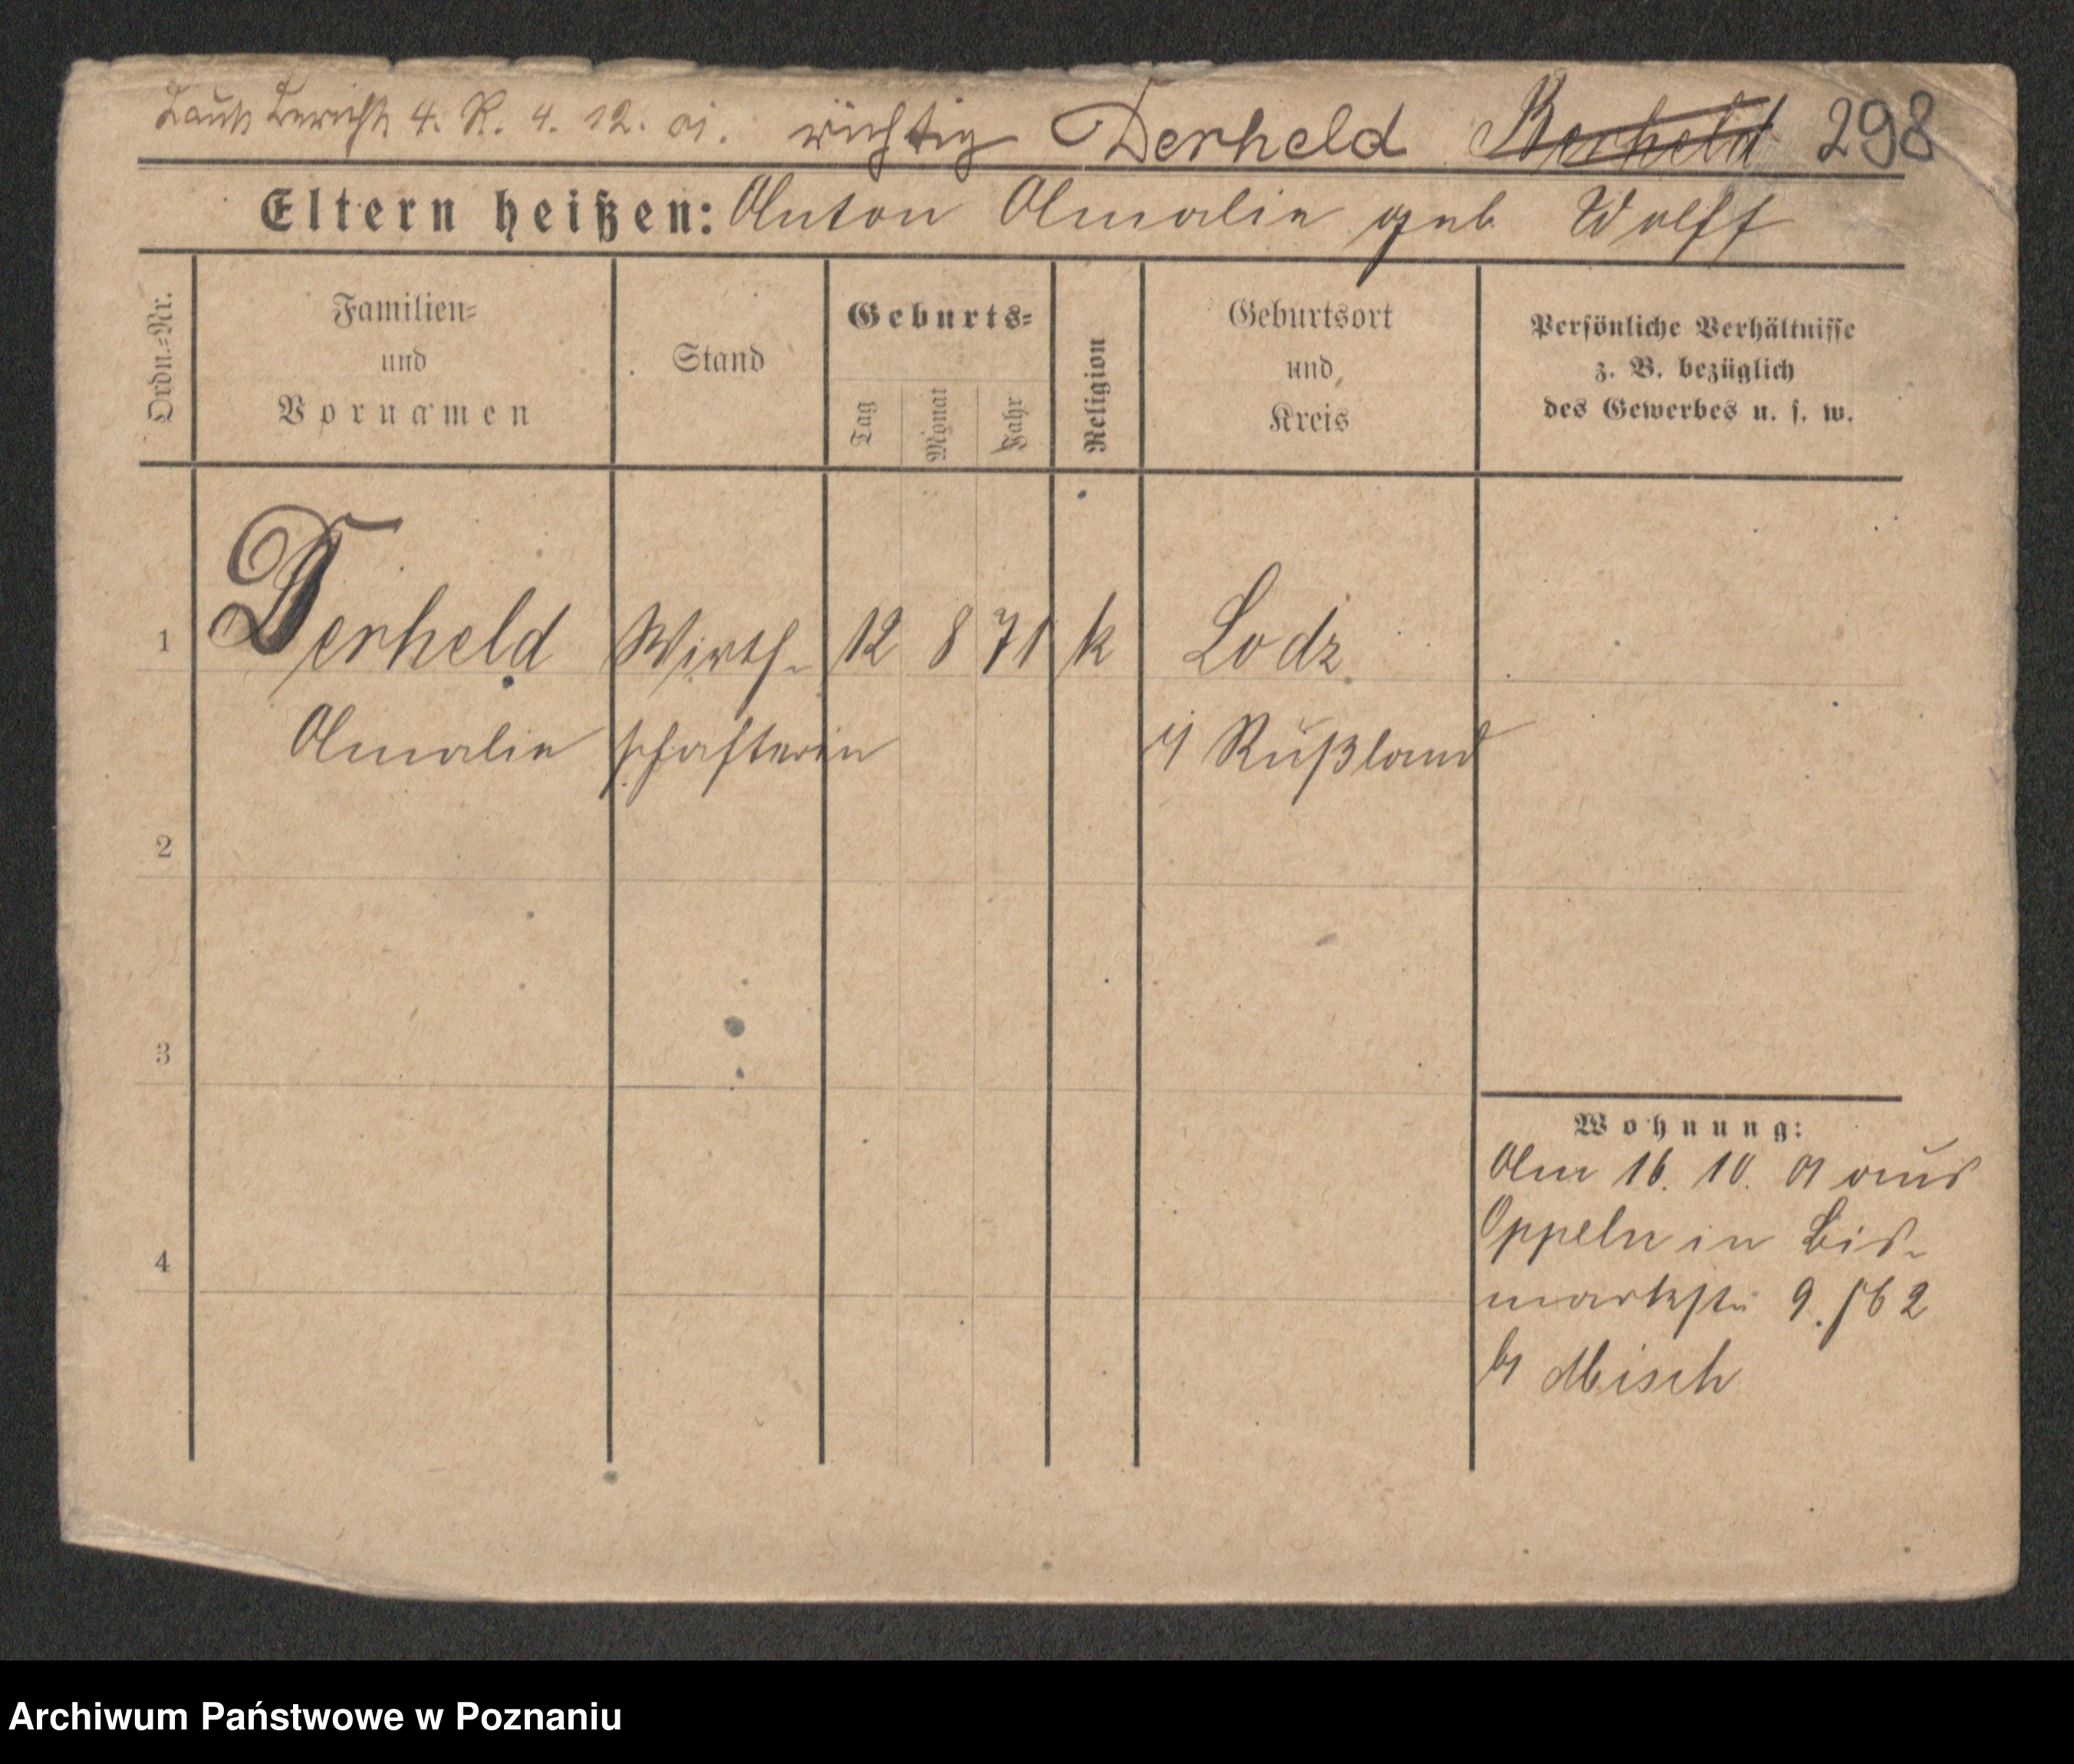 Laut Bericht 4. R. 4. 12. 01. richtig Derheld Berheld 298
Eltern heißen: Anton Amalie geb Wolff
Ordn.-Nr.
Familien-
und
Vornamen
Stand
Geburts-
Tag
Monat
Jahr
Religion
Geburtsort
und
Kreis
Persönliche Verhältnisse
z. B. bezüglich
des Gewerbes u. s. w.
1 Derheld Wirth- 12 8 71 k Lodz
Amalie schafterin i/ Rußland
2
3
4
Wohnung:
Am 16. 10. 01 aus
Oppeln in Bis-
markstr 9. 2
b/ Misch
Archiwum Państwowe w Poznaniu